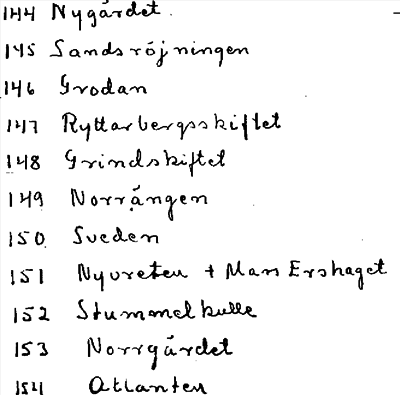 144 Nygärdet.
145 Sandsröjningen
146 Grodan
147 Ryttarbergsskiftet
148 Grindskiftet
149 Norrängen
150 Sveden
151 Nyvreten + Mans Ershaget
152 Stummelkulle
153 Norrgärdet
154 Atlanten